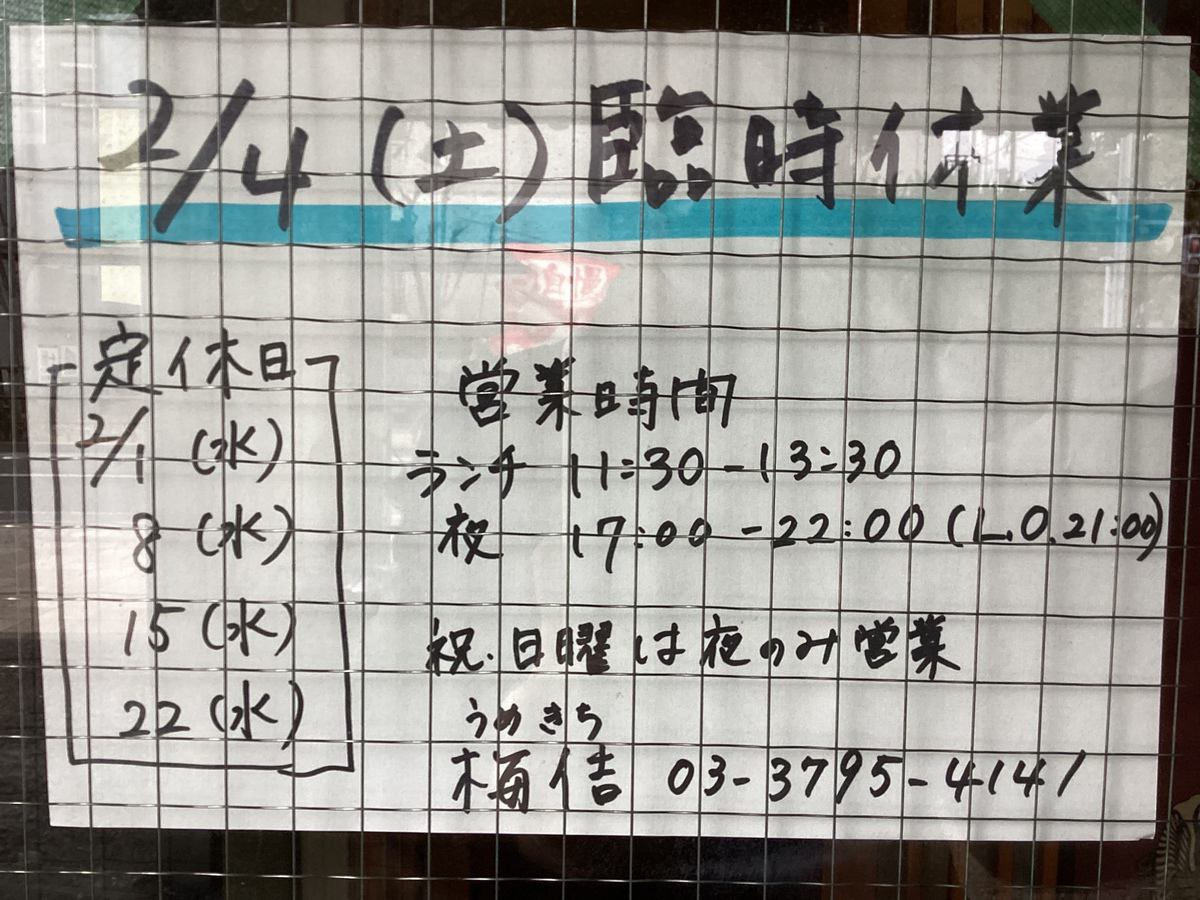 2/4(土)臨時休業
定休日
2/1 (水)
8 (水)
15 (水)
22 (水)
営業時間
ランチ 11:30-13:30
夜 17:00-22:00 (L.O.21:00)
祝・日曜は夜のみ営業
うめきち
梅佶 03-3795-4141